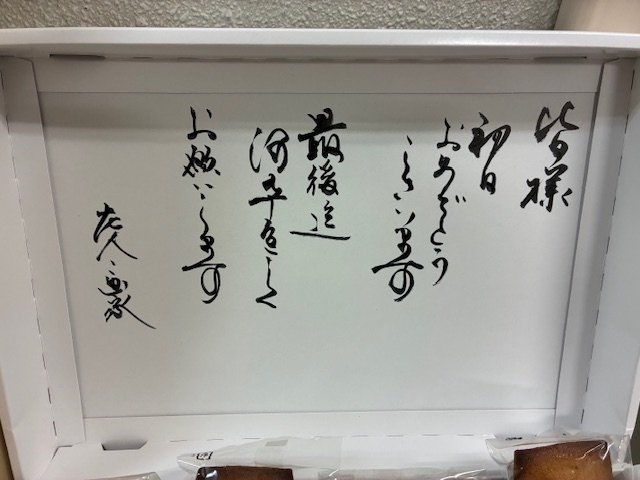 皆様
初日
おめでとう
ございます
最後迄
何卒宜しく
お願いします